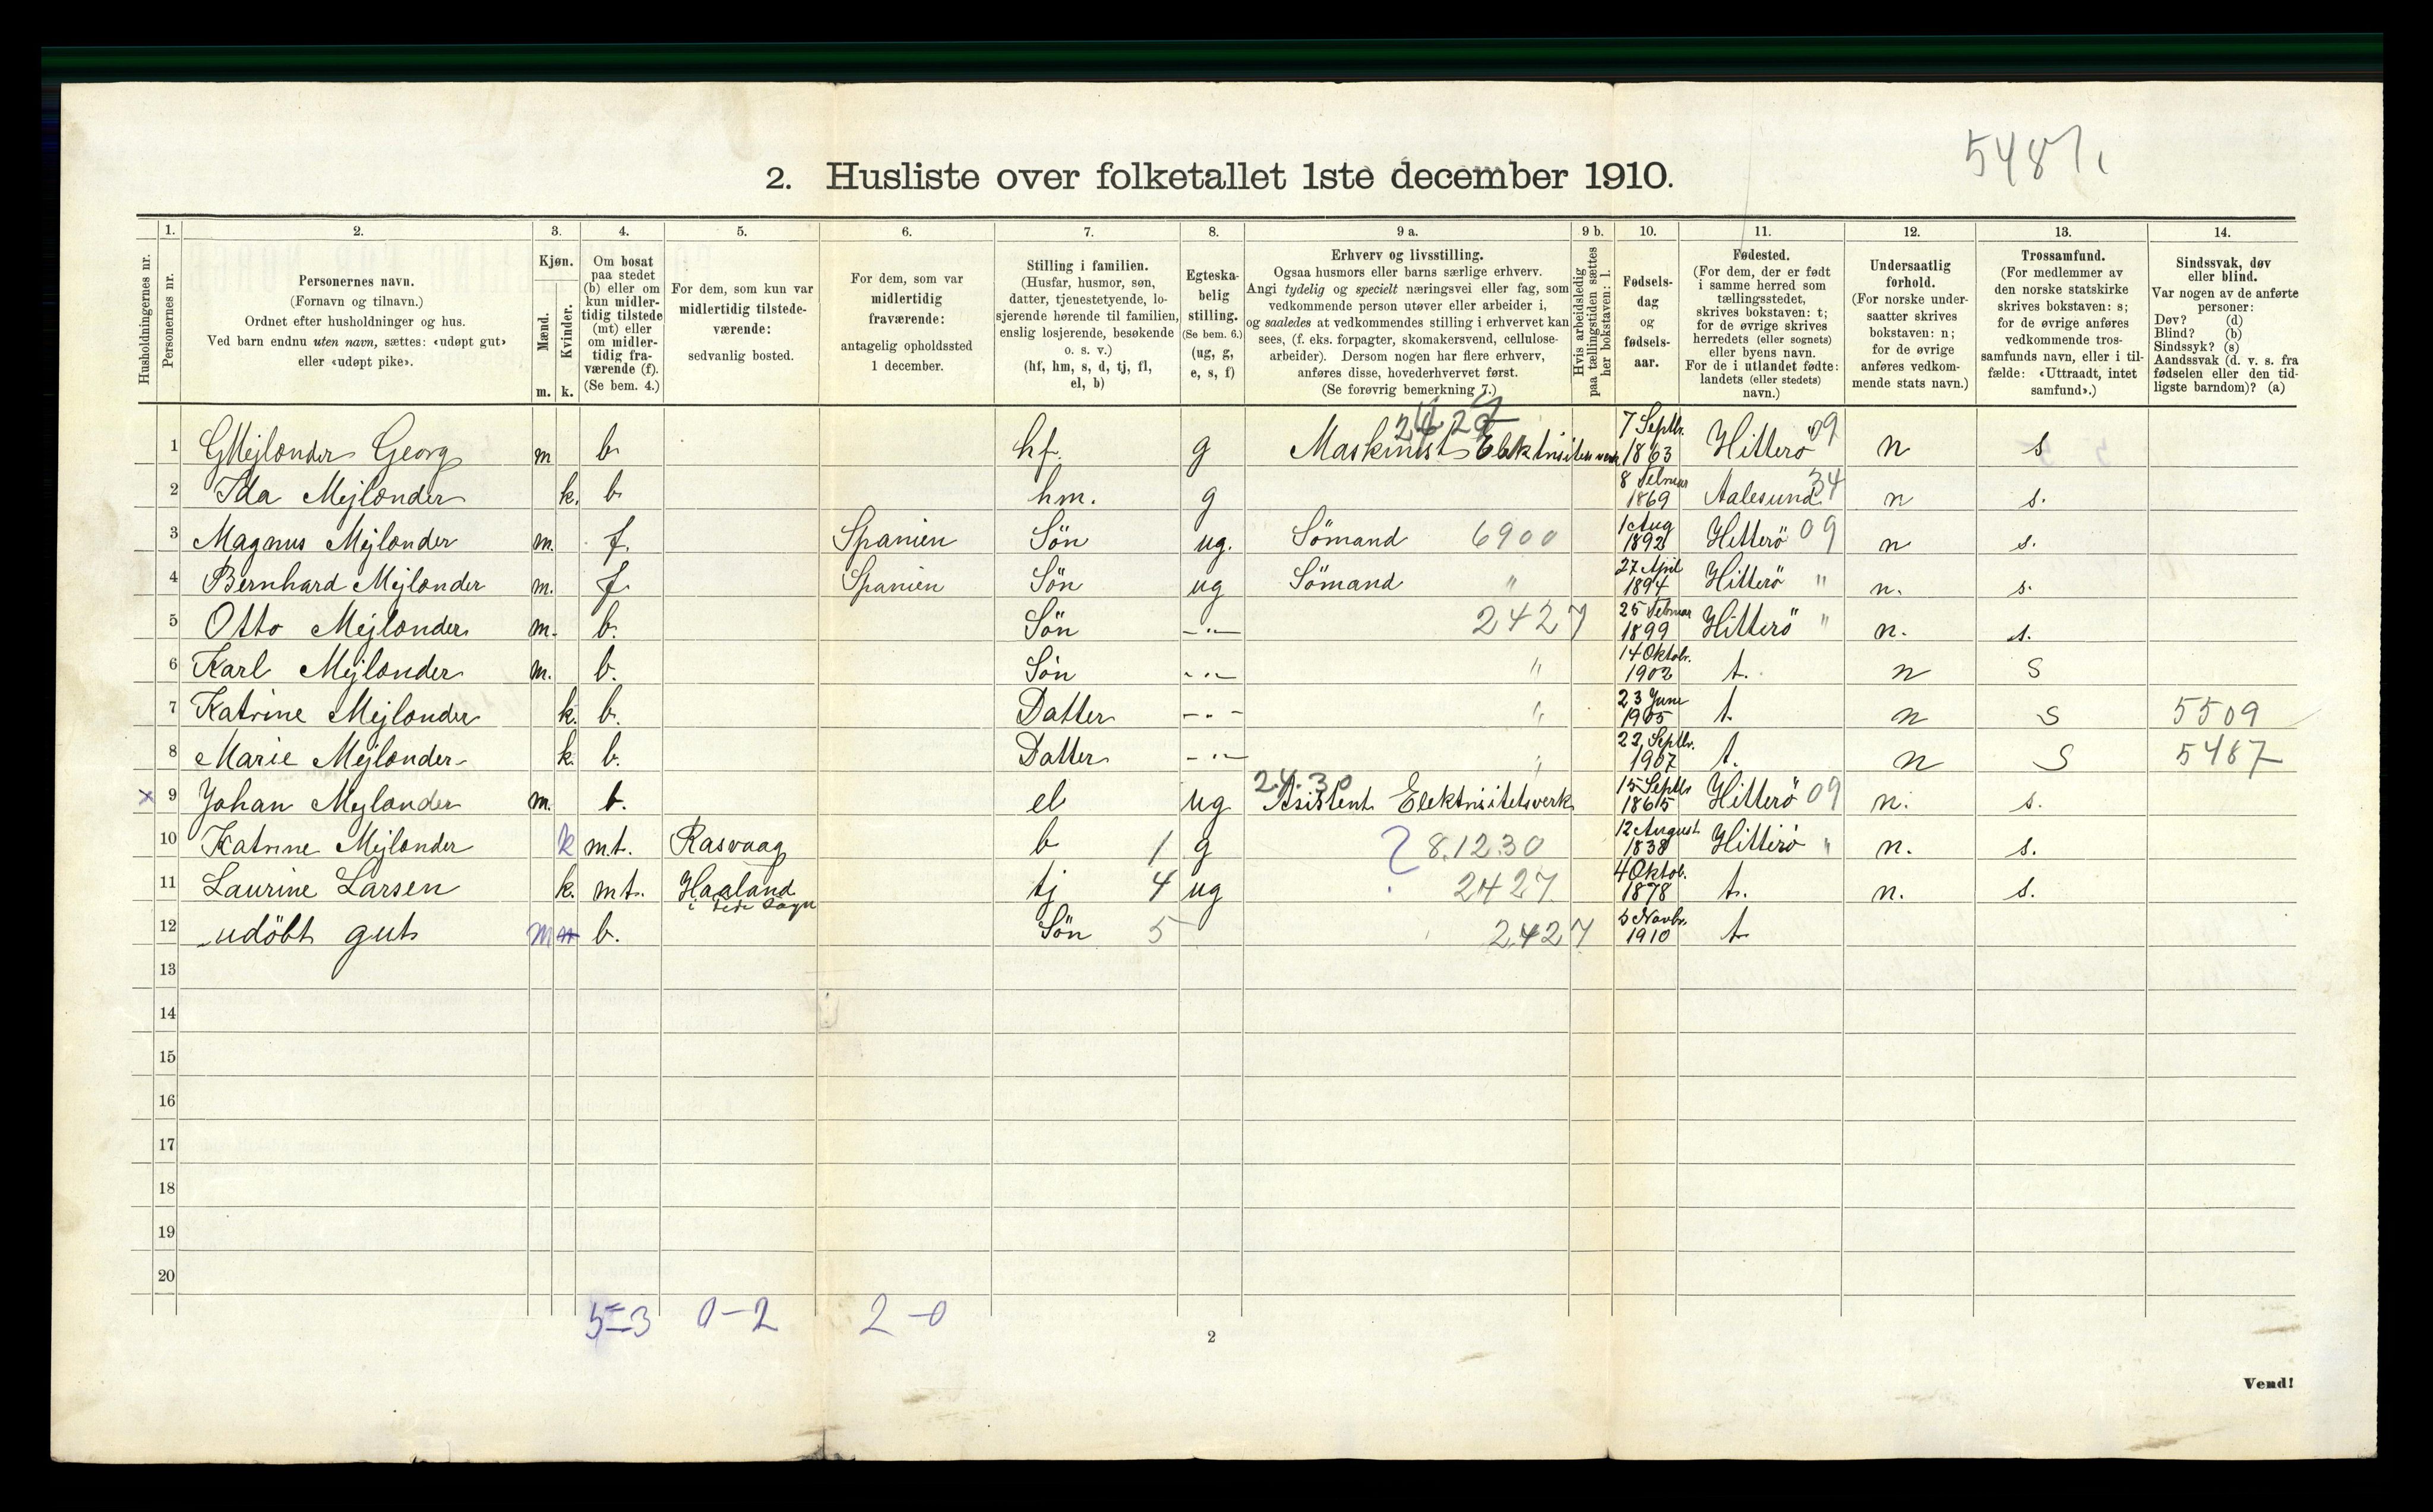 5487.
2. Husliste over folketallet 1ste december 1910.
Husholdningernes nr.
1. Personernes nr.
2.
Personernes navn.
(Fornavn og tilnavn.)
Ordnet efter husholdninger og hus.
Ved barn endnu uten navn, sættes: «udøpt gut»
eller «udøpt pike».
3.
Kjøn.
Mænd. Kvinder.
m. k.
4.
Om bosat
paa stedet
(b) eller om
kun midler-
tidig tilstede
(mt) eller
om midler-
tidig fra-
værende (f).
(Se bem. 4.)
5.
For dem, som kun var
midlertidig tilstede-
værende:
sedvanlig bosted.
6.
For dem, som var
midlertidig
fraværende:
antagelig opholdssted
1 december.
7.
Stilling i familien.
(Husfar, husmor, søn,
datter, tjenestetyende, lo-
sjerende hørende til familien,
enslig losjerende, besøkende
o. s. v.)
(hf, hm, s, d, tj, fl,
el, b)
8.
Egteska-
belig
stilling.
(Se bem. 6.)
(ug, g,
e, s, f)
9 a.
Erhverv og livsstilling.
Ogsaa husmors eller barns særlige erhverv.
Angi tydelig og specielt næringsvei eller fag, som
vedkommende person utøver eller arbeider i,
og saaledes at vedkommendes stilling i erhvervet kan
sees, (f. eks. forpagter, skomakersvend, cellulose-
arbeider). Dersom nogen har flere erhverv,
anføres disse, hovederhvervet først.
(Se forøvrig bemerkning 7.)
9 b.
Hvis arbeidsledig
paa tællingstiden sættes
her bokstaven: l.
10.
Fødsels-
dag
og
fødsels-
aar.
11.
Fødested.
(For dem, der er født
i samme herred som
tællingsstedet,
skrives bokstaven: t;
for de øvrige skrives
herredets (eller sognets)
eller byens navn.
For de i utlandet fødte:
landets (eller stedets)
navn.)
12.
Undersaatlig
forhold.
(For norske under-
saatter skrives
bokstaven: n;
for de øvrige
anføres vedkom-
mende stats navn.)
13.
Trossamfund.
(For medlemmer av
den norske statskirke
skrives bokstaven: s;
for de øvrige anføres
vedkommende tros-
samfunds navn, eller i til-
fælde: «Uttraadt, intet
samfund».)
14.
Sindssvak, døv
eller blind.
Var nogen av de anførte
personer:
Døv? (d)
Blind? (b)
Sindssyk? (s)
Aandssvak (d. v. s. fra
fødselen eller den tid-
ligste barndom)? (a)
1 GMejlænder Georg m b. hf. g Maskinist Elektrisitetsverk 7 Septbr. 1863 Hitterö 09 n s
2 Ida Mejlænder k. b. hm. g 8 Februar 1869 Aalesund. 34 n s.
3 Magnus Mejlænder m. f. Spanien Sön ug. Sömand 6900 1 Aug 1892 Hitterö 09 n s.
4 Bernhard Mejlænder m. f. Spanien Sön ug Sömand " 27 April 1894 Hitterö " n. s.
5 Otto Mejlænder m. b. Sön -"- 2427 25 Februar 1899 Hitterö " n. s.
6 Karl Mejlænder m. b. Sön -"- " 14 Oktobr. 1902 t. n s
7 Katrine Mejlænder k. b. Datter -"- " 23 Juni 1905 t. n s 5509
8 Marie Mejlænder k. b. Datter -"- " 23 Septbr. 1907 t. n s 5487
x 9 Johan Mejlænder m. b. el ug 2430 Asistent Elektrisitetsverk 15 Septbr 1865 Hitterö 09 n. s.
10 Katrine Mejlænder k mt. Rasvaag b 1 g ? 8.12.30 12 August 1838 Hitterö " n. s.
11 Laurine Larsen k. mt. Haaland i dete Sogn tj 4 ug 2427 4 Oktob. 1878 t. n. s.
12 udöbt gut m b. Sön 5 2427 5 Novbr. 1910 t
13
14
15
16
17
18
19
20
5-3 0-2 2-0
2
Vend!